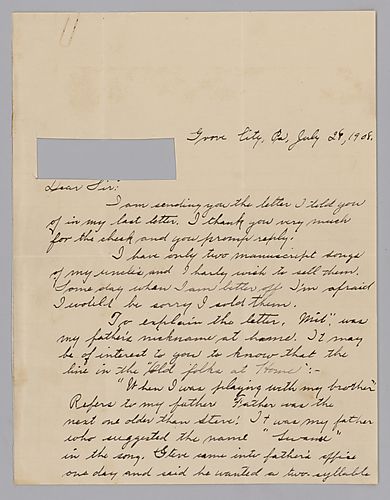 Grove City, Pa, July 28, 1908.
Dear Sir:
I am sending you the letter I told you
of in my last letter. I thank you very much
for the check and you promp reply.
I have only two manuscript songs
of my uncles and I harly wish to sell them.
Some day when I am letter off I'm afraid
I would be sorry I sold them.
To explain the letter, "Mit", was
my father's nickname at home. It may
be of interest to you to know that the
line in the Old folks at Home":-
"When I was playing with my brother"
Refers to my father Father was the
next one older than Steve! It was my father
who suggested the name "Swanee"
in the song. Steve came into father's office
one day and said he wanted a two syllable